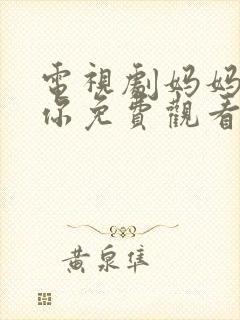 電視劇妈妈
你免費觀看
黄泉隼